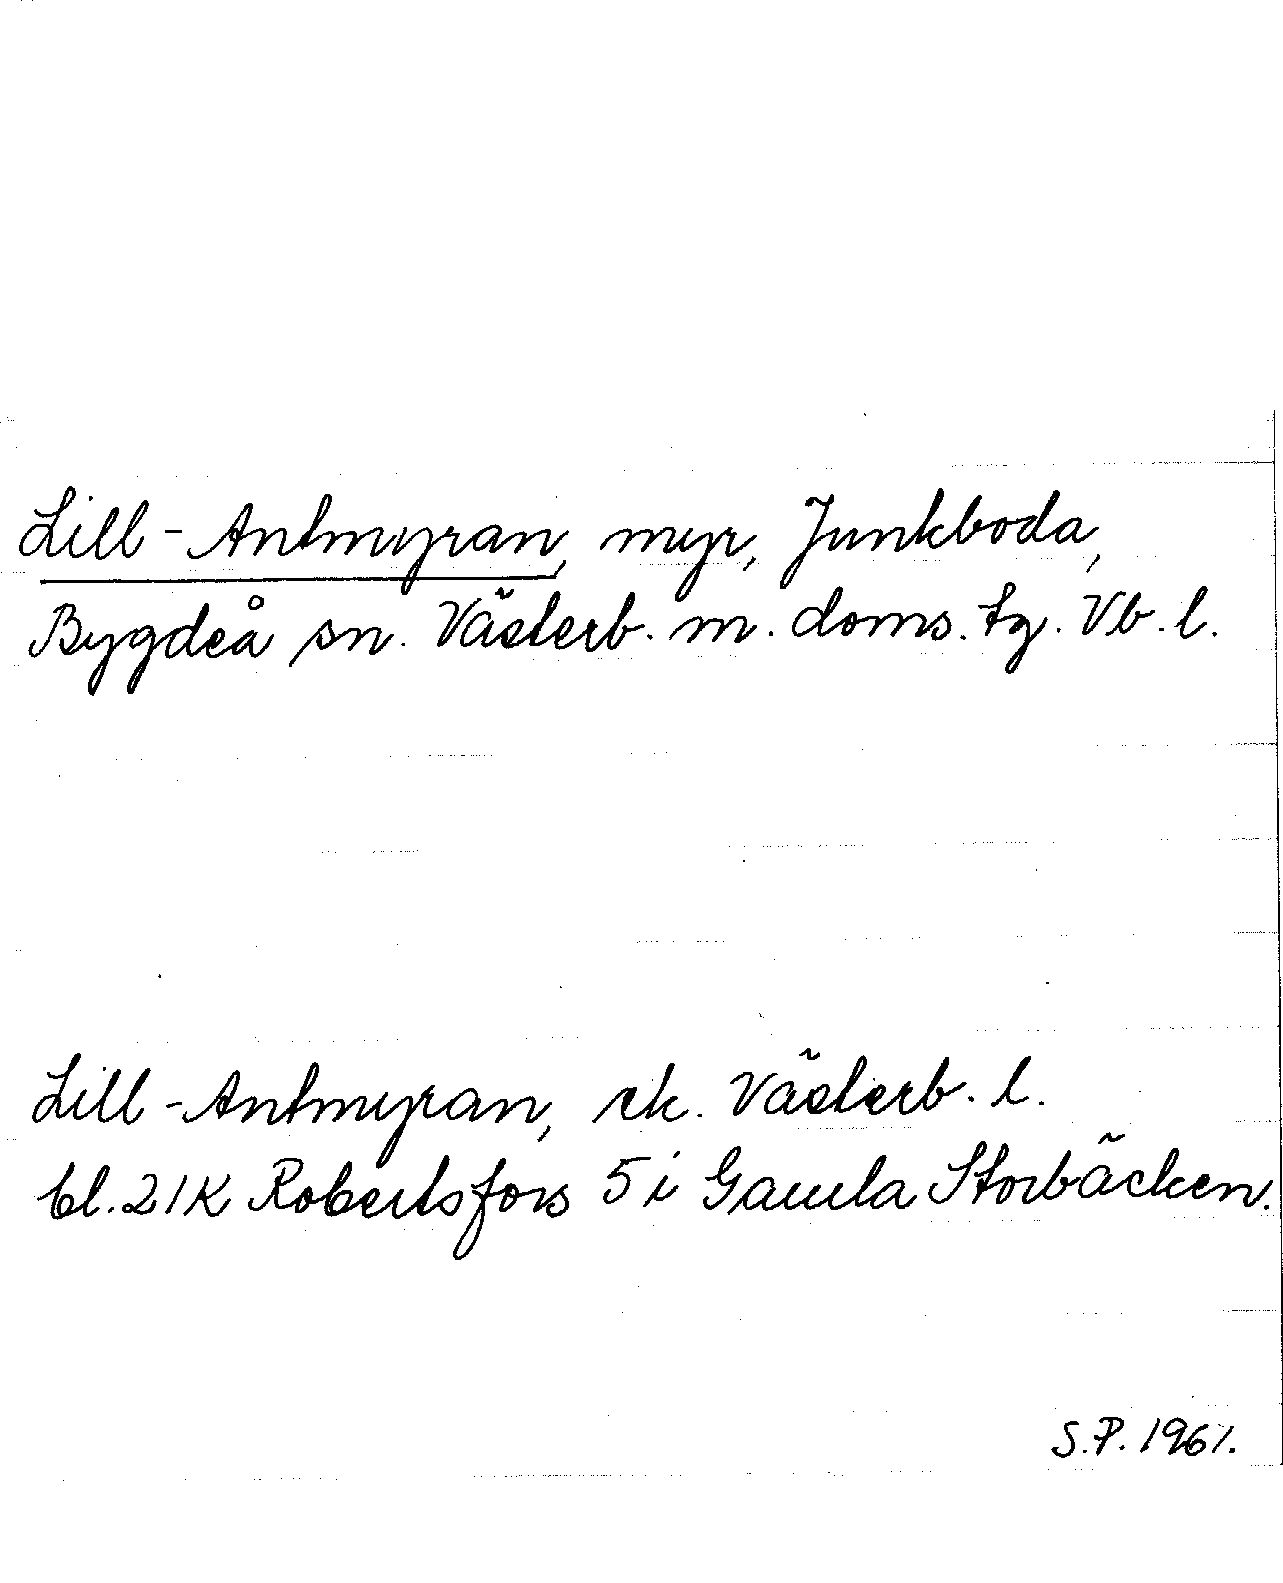 Lill-Antmyran, myr, Junkboda,
Bygdeå sn. Västerb. m. doms. tg. Vb. l.
Lill-Antmyran, ek. Västerb. l.
bl. 21K Robertsfors 5 i Gamla Storbäcken.
S.P. 1961.